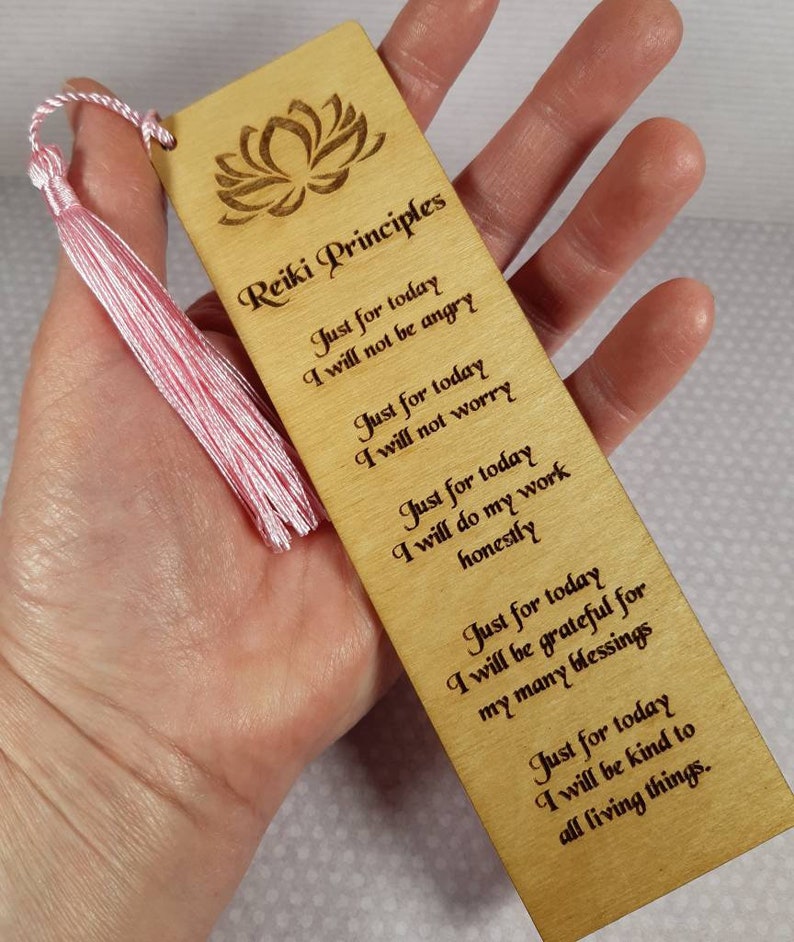 Reiki Principles
Just for today
I will not be angry
Just for today
I will not worry
Just for today
I will do my work
honestly
Just for today
I will be grateful for
my many blessings
Just for today
I will be kind to
all living things.